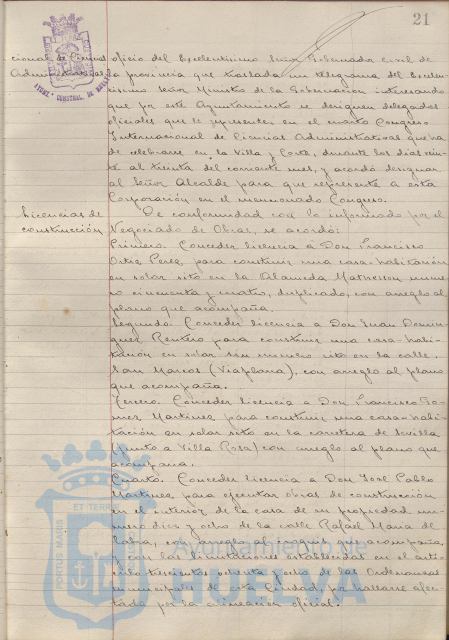 21
cional de Ciencias
Administrativas
oficio del Excelentísimo Señor Gobernador civil de
la provincia que traslada un telegrama del Excelen-
tísimo Señor Ministro de la Gobernación interesando
que por este Ayuntamiento se designen delegados
oficiales que le representen en el cuarto Congreso
Internacional de Ciencias Administrativas que va
de celebrarse en la Villa y Corte, durante los dias vein-
te al treinta del corriente mes, y acordó designar
al Señor Alcalde para que represente a esta
Corporación en el mencionado Congreso.
Licencias de
construcción
De conformidad con lo informado por el
Negociado de Obras, se acordó:
Primero. Conceder licencia á Don Francisco
Ortiz Perez, para construir una casa-habitación
en solar sito en la Alameda Mathesson núme
ro cincuenta y cuatro, duplicado, con arreglo al
plano que acompaña.
Segundo. Conceder licencia a Don Juan Domin-
guez Rentero para construir una casa-habi-
tación en solar sin número sito en la calle
San Marcos (Viaplana), con arreglo al plano
que acompaña.
Tercero. Conceder licencia a Don Francisco Go-
mez Martinez para construir una casa-habi-
tación en solar sito en la carretera de Sevilla
(junto a Villa Rosa) con arreglo al plano que
acompaña.
Cuarto. Conceder licencia a Don José Pablo
Martinez para ejecutar obras de construcción
en el interior de la casa de su propiedad nú-
mero diez y ocho de la calle Rafael Maria de
Labra, con arreglo al croquis que acompaña,
y con las limitaciones establecidas en el artí-
culo trescientos ochenta y ocho de las Ordenanzas
municipales de esta Ciudad, por hallarse afec-
tada por la alineación oficial.
PORTUS MARIS
ET TERRAE
Ayuntamiento de
HUELVA